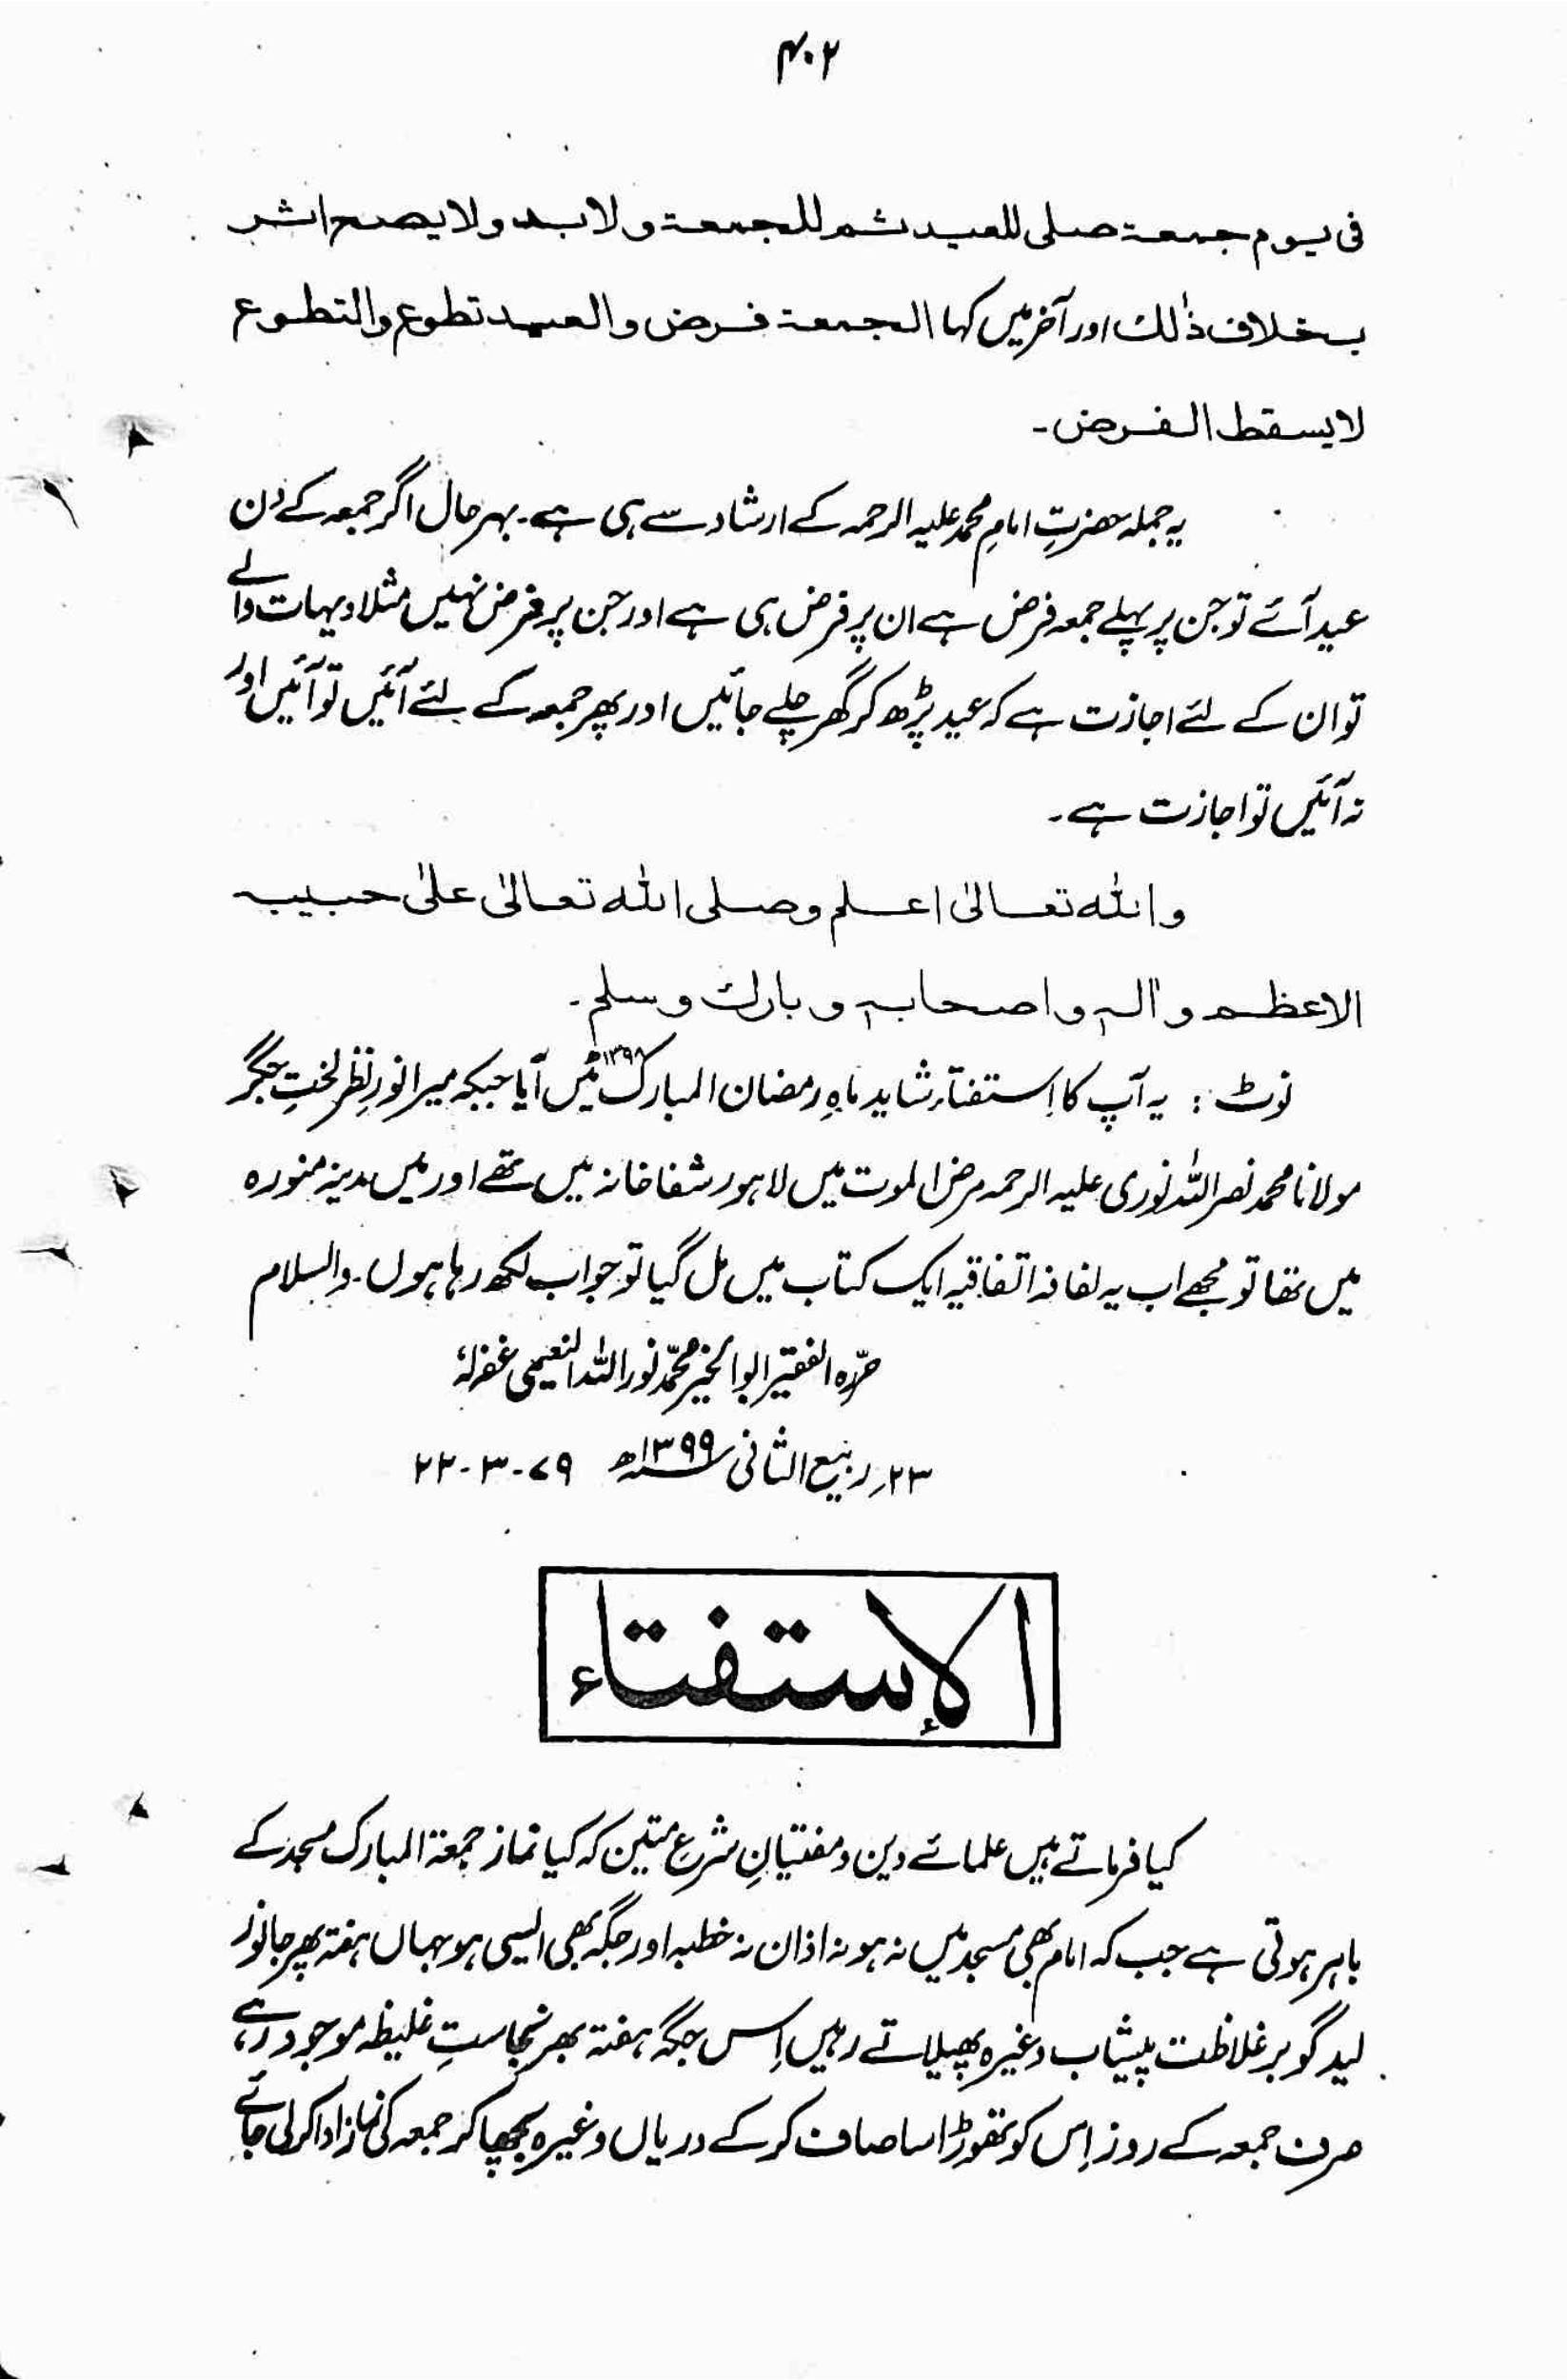 ۷۰۲
فی یوم جمعۃ صلی للعید ثم للجمعۃ ولا بد ولا یصح اثر
بخلاف ذٰلک اور آخر میں کہا الجمعۃ فرض والعید تطوع والتطوع
لا یسقط الفرض۔
یہ جملہ حضرتِ امامِ محمد علیہ الرحمہ کے ارشاد سے ہی ہے۔ بہرحال اگر جمعہ کے دن
عید آئے تو جن پر پہلے جمعہ فرض ہے ان پر فرض ہی ہے اور جن پر فرض نہیں مثلا دیہات والے
تو ان کے لئے اجازت ہے کہ عید پڑھ کر گھر چلے جائیں اور پھر جمعہ کے لئے آئیں تو آئیں اور
نہ آئیں تو اجازت ہے۔
واللہ تعالیٰ اعلم وصلی اللہ تعالیٰ علیٰ حبیبہ
الاعظم واٰلہ واصحابہ وبارک وسلم۔
نوٹ : یہ آپ کا اِستفتاء شاید ماہِ رمضان المبارک ۱۳۹۸ میں آیا جبکہ میرا نورِ نظر لختِ جگر
مولانا محمد نصر اللہ نوری علیہ الرحمہ مرض الموت میں لاہور شفاخانہ میں تھے اور میں مدینہ منورہ
میں تھا تو مجھے اب یہ لفافہ اتفاقیہ ایک کتاب میں مل گیا تو جواب لکھ رہا ہوں۔ والسلام
حرّرہ الفقیر ابوالخیر محمّد نور اللہ النعیمی غفرلہٗ
۲۳؍ ربیع الثانی ۱۳۹۹ھ ۷۹-۳-۲۲
الاِستفتاء
کیا فرماتے ہیں علمائے دین و مفتیانِ شرعِ متین کہ کیا نماز جمعۃ المبارک مسجد کے
باہر ہوتی ہے جب کہ امام بھی مسجد میں نہ ہو نہ اذان نہ خطبہ اور جگہ بھی ایسی ہو جہاں ہفتہ بھر جانور
لید گوبر غلاظت پیشاب وغیرہ پھیلاتے رہیں اِس جگہ ہفتہ بھر نجاستِ غلیظہ موجود رہے،
صرف جمعہ کے روز اِس کو تھوڑا سا صاف کر کے دریاں وغیرہ بچھا کر جمعہ کی نماز ادا کر لی جائے